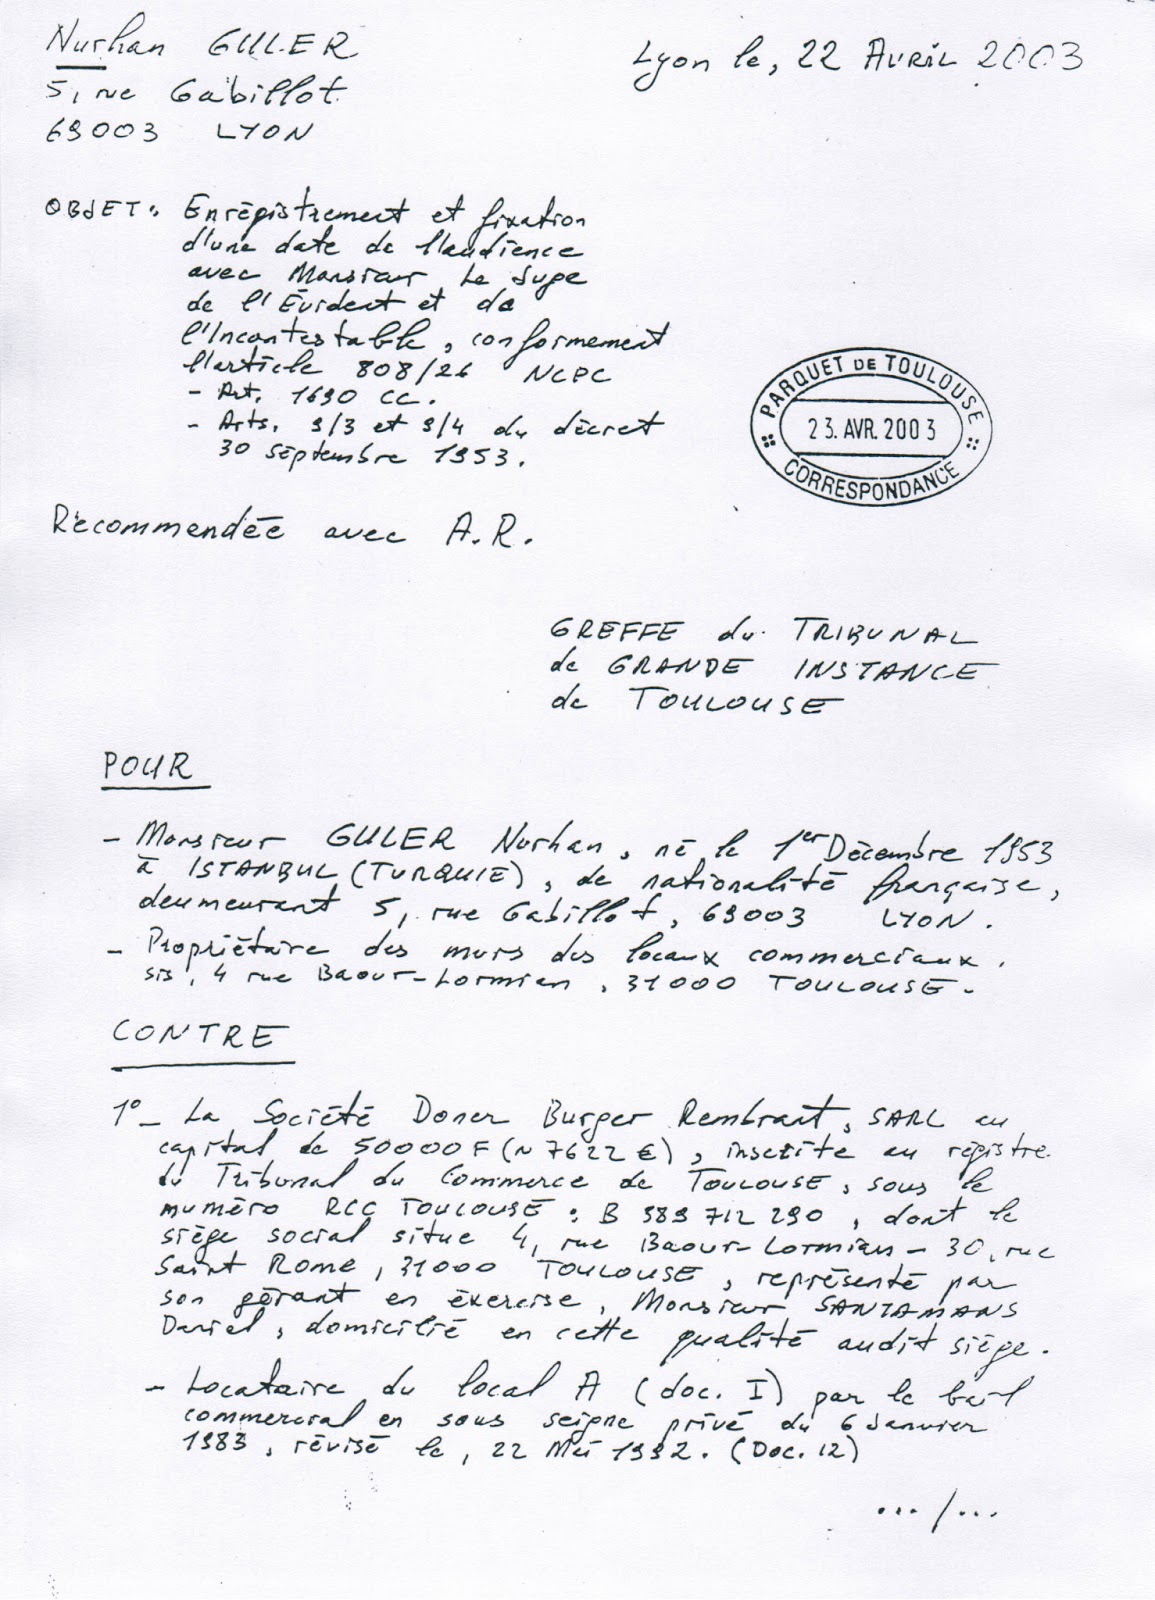 Nurhan GULER
5, rue Gabillot
69003 LYON
Lyon le, 22 AVRIL 2003
OBJET: Enrégistrement et fixation
d'une date de l'audience
avec Monsieur Le Juge
de l'Évident et de
l'Incontestable, conformement
l'article 808/26 NCPC
- Art. 1690 CC.
- Arts. 9/3 et 9/4 du décret
30 séptembre 1953.
PARQUET DE TOULOUSE
23. AVR. 2003
CORRESPONDANCE
Recommendée avec A.R.
GREFFE du TRIBUNAL
de GRANDE INSTANCE
de TOULOUSE
POUR
- Monsieur GULER Nurhan, né le 1er Décembre 1953
à ISTANBUL (TURQUIE), de nationalité française,
deumeurant 5, rue Gabillot, 69003 LYON.
- Propriétaire des murs des locaux commerciaux.
sis, 4 rue Baour-Lormian, 31000 TOULOUSE.
CONTRE
1°- La Société Doner Burger Rembrant, SARL au
capital de 50000F (~ 7622 €), inscrite au régistre
du Tribunal du Commerce de TOULOUSE, sous le
numéro RCC TOULOUSE : B 389 712 290, dont le
siège social situe 4, rue Baour-Lormian - 30, rue
Saint Rome, 31000 TOULOUSE, représenté par
son gérant en éxercise, Monsieur SANTAMANS
Daniel, domicilié en cette qualité audit siège.
- Locataire du local A (doc. I) par le bail
commercial en sous seigne privé du 6 Janvier
1983, révisé le, 22 Mai 1992. (Doc. 12)
.../...